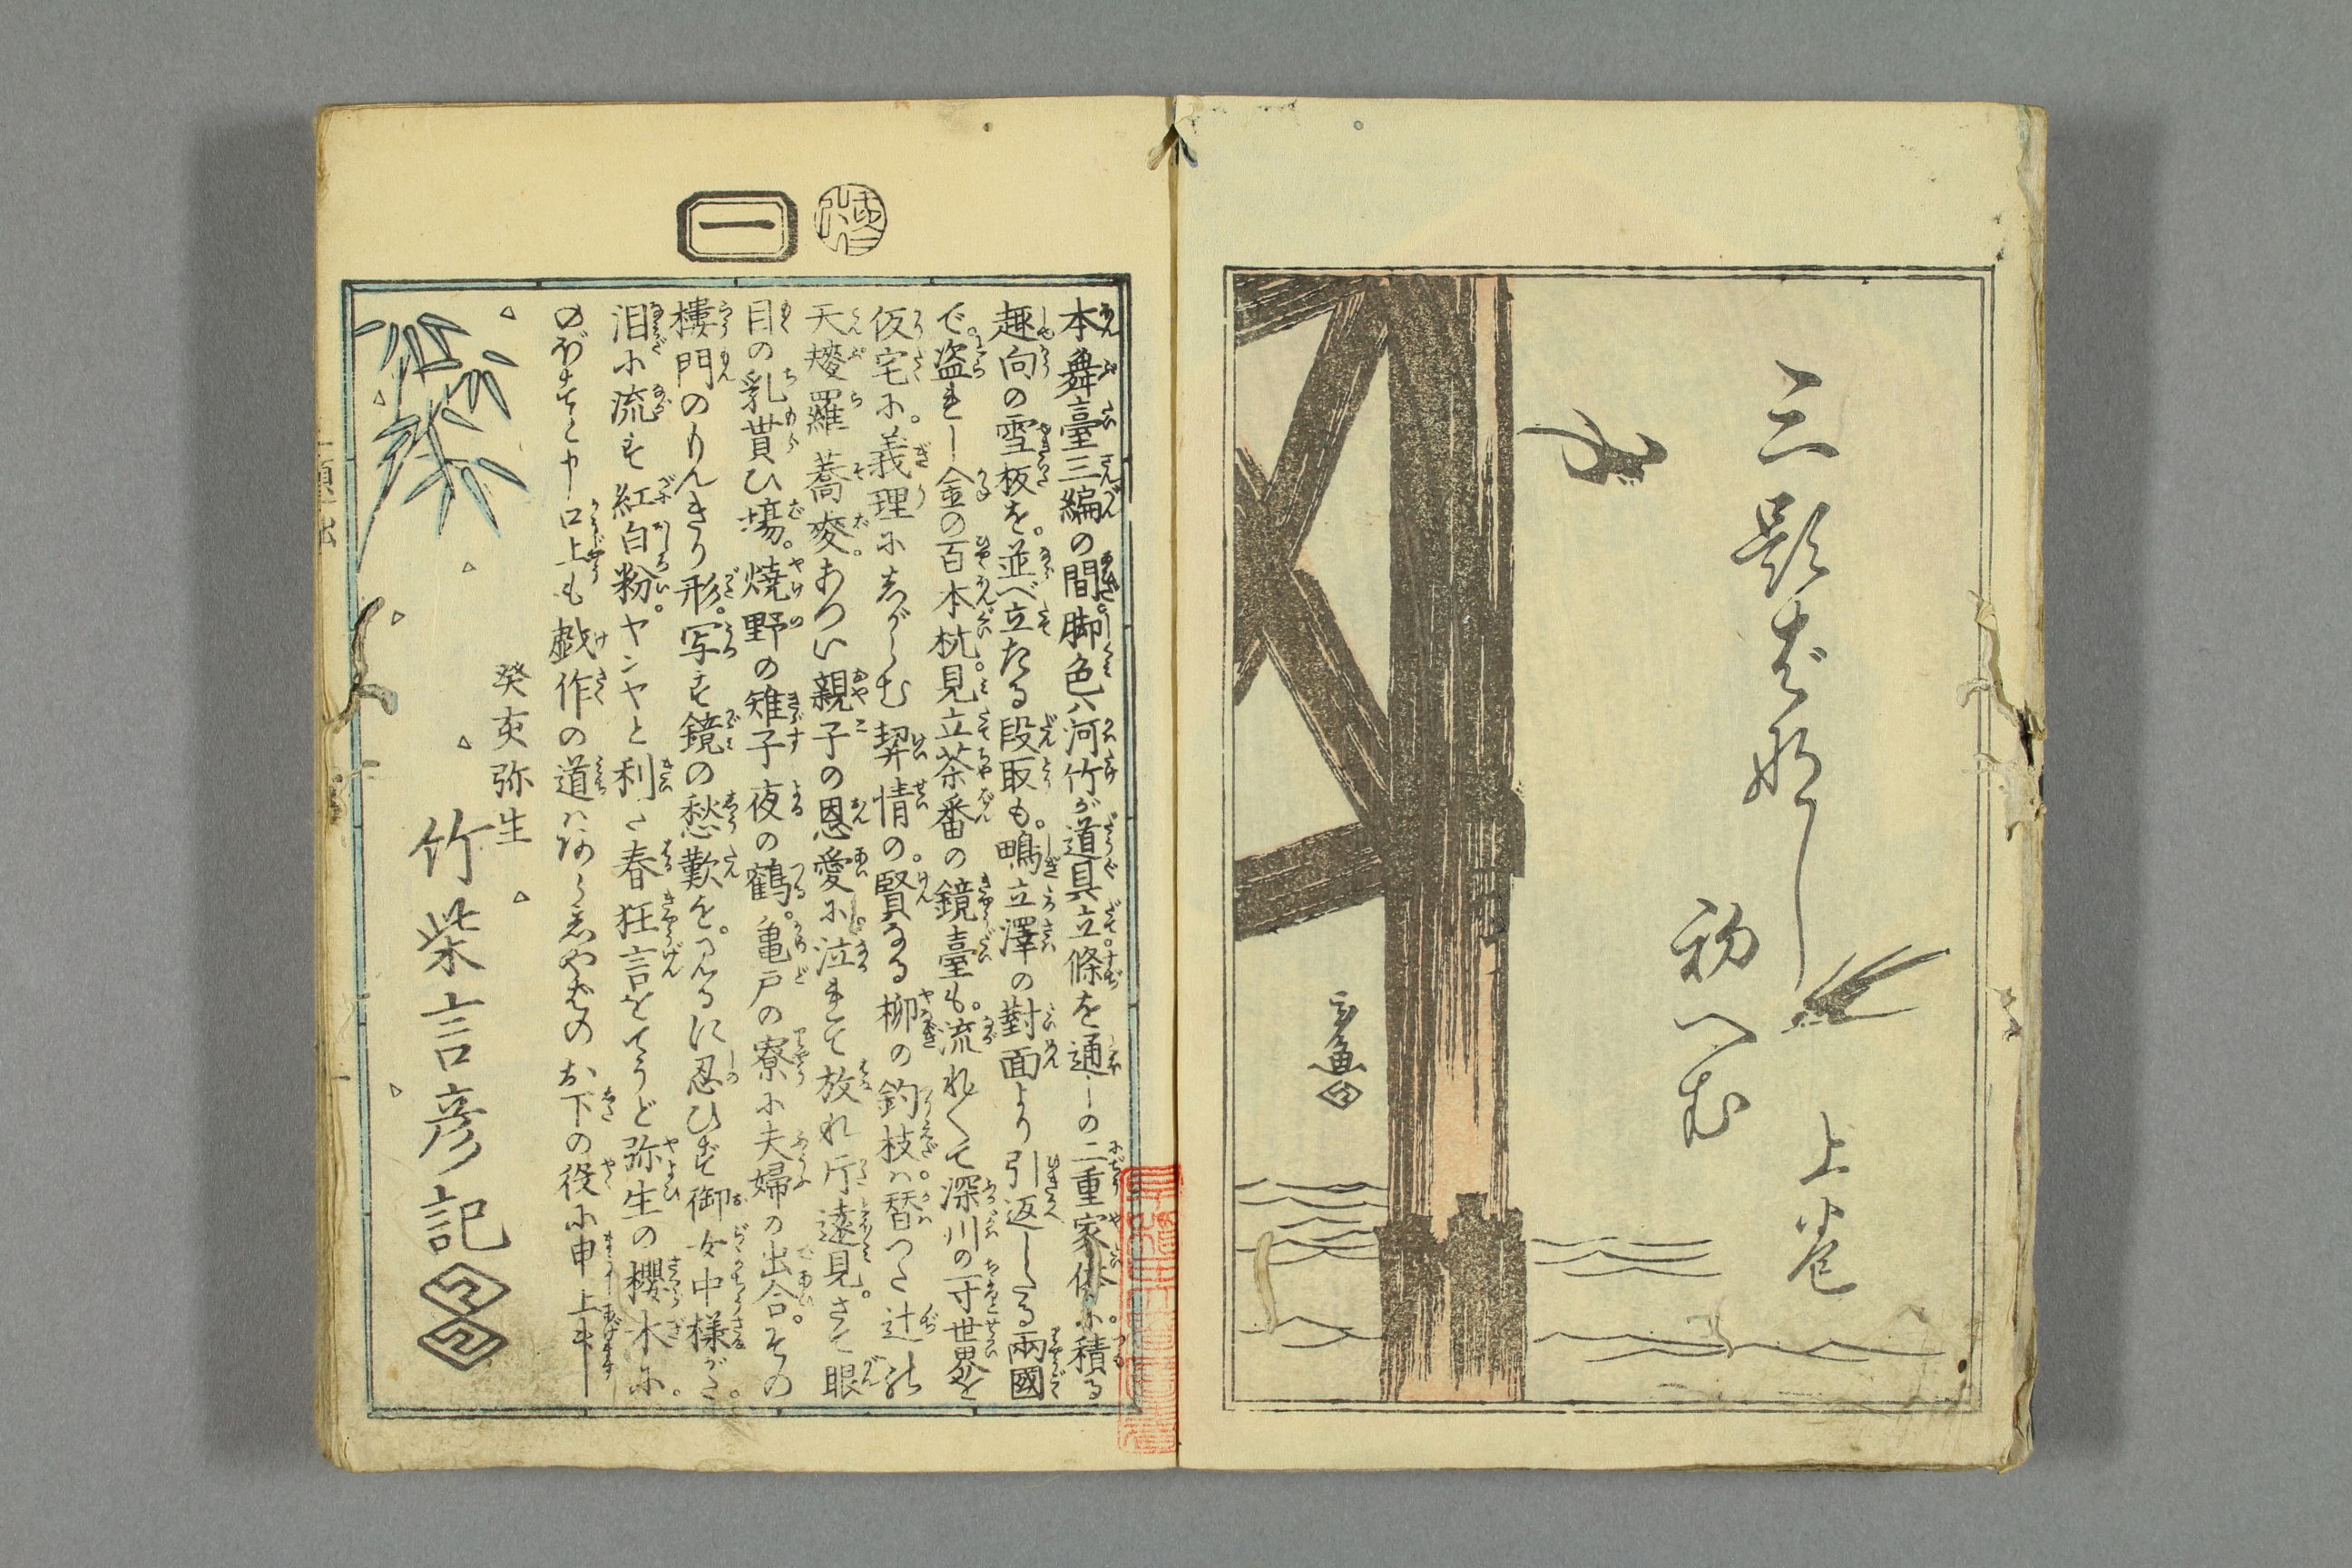 三題ばなし
初へむ
上巻
玄魚
一
本舞臺三編の間脚色ハ河竹が道具立條を通しの二重家体に積る
趣向の雪板を。並べ立たる段取も。鴫立澤の對面より引返したる兩國
で盗れし金の百本杭。見立茶番の鏡臺も。流れ〳〵て深川の一寸世界を
仮宅に。義理にしがらむ契情の。賢なる柳の釣枝。ハ替つた辻
天麩羅蕎麥。あつい親子の恩愛に泣れて放れ斤遠見。さて眼
目の乳貰ひ場。焼野の雉子夜の鶴。亀戸の寮に夫婦の出合。その
樓門のりんきり形。写す鏡の愁歎を。見るに忍ひず御女中様がた。
泪に流す紅白粉。ヤンヤと利た春狂言をてうど弥生の櫻木に。
口上も戯作の道ハ お下の役に申上升
癸亥弥生
竹柴言彦記